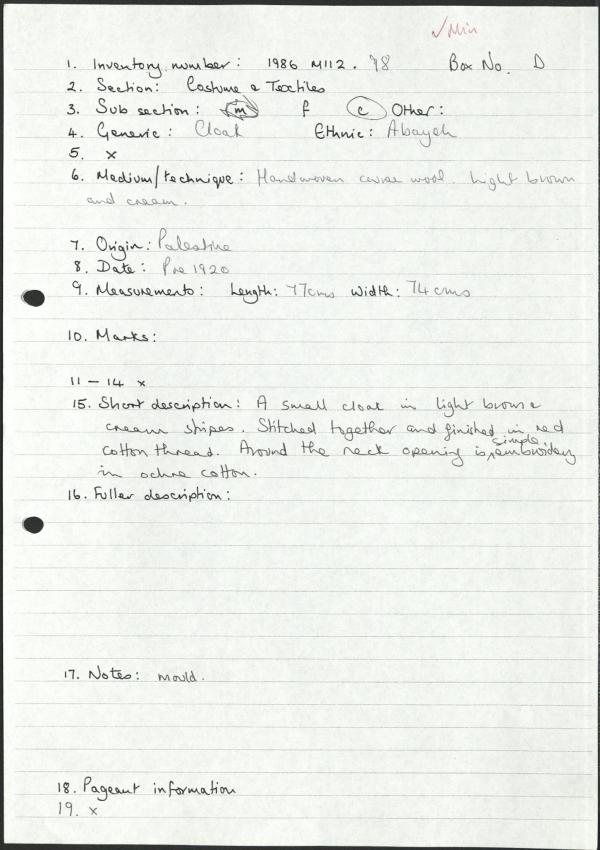 ✓ Min
1. Inventory number: 1986 M112. 98 Box No. D
2. Section: Costume & Textiles
3. Sub section: m f c Other:
4. Generic: Cloak Ethnic: Abayeh
5. x
6. Medium/technique: Handwoven wool. Light brown
and cream.
7. Origin: Palestine
8. Date: Pre 1920
9. Measurements: Length: 77cms Width: 74 cms
10. Marks:
11 – 14 x
15. Short description: A small cloak in light brown &
cream stripes. Stitched together and finished in red
cotton thread. Around the neck opening is simple embroidery
in ochre cotton.
16. Fuller description:
17. Notes: mould.
18. Pageant information
19. x